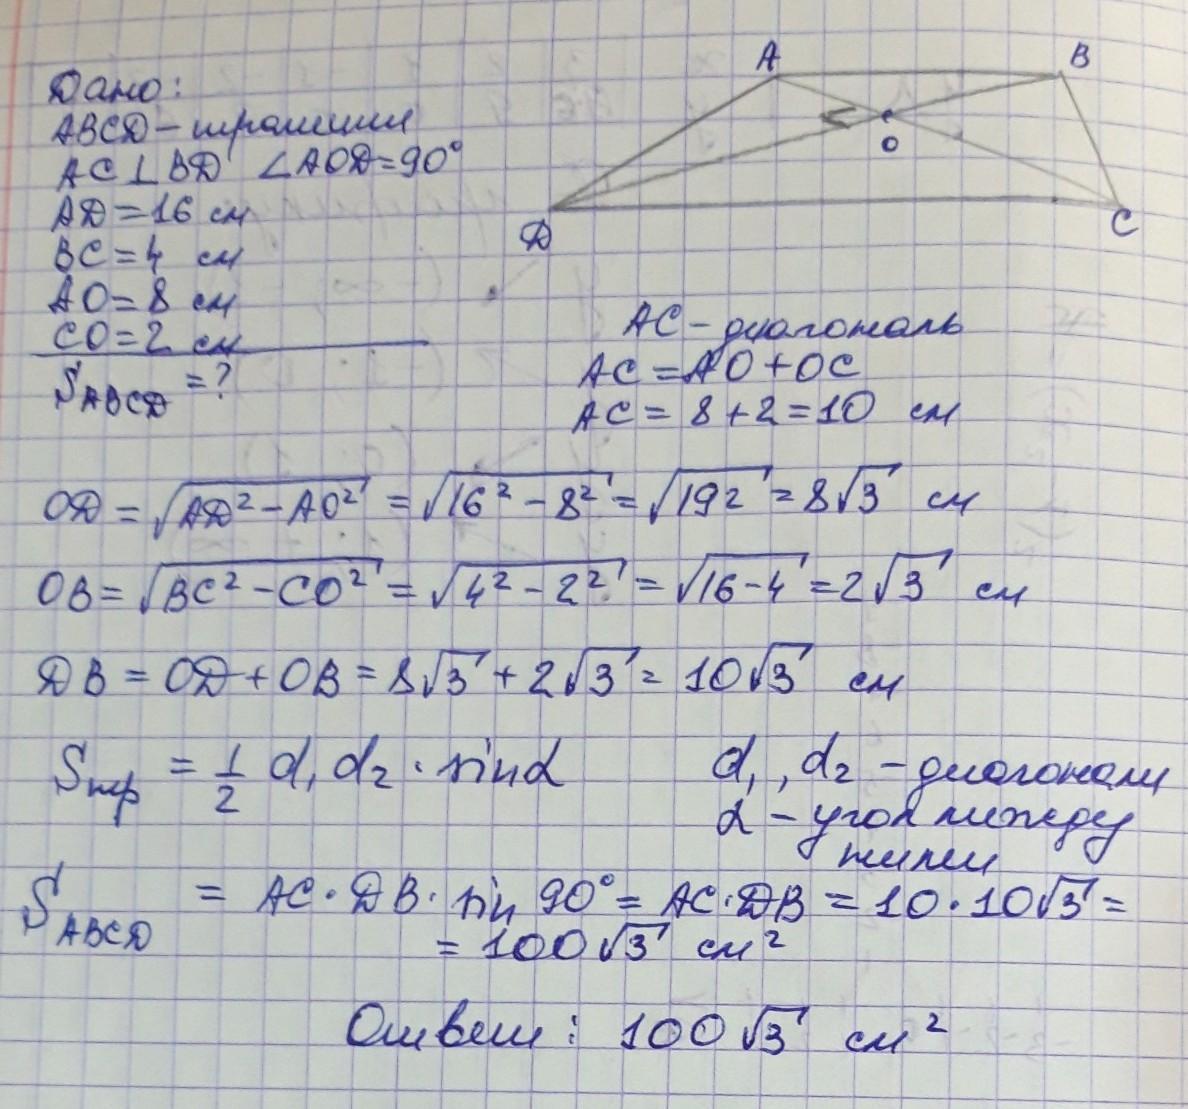 Дано:
ABCD – трапеция
AC ⊥ BD ∠AOD = 90°
AD = 16 см
BC = 4 см
AO = 8 см
CO = 2 см
S ABCD = ?
A
B
O
D
C
AC – диагональ
AC = AO + OC
AC = 8 + 2 = 10 см
OD = √(AD² – AO²) = √(16² – 8²) = √192 = 8√3 см
OB = √(BC² – CO²) = √(4² – 2²) = √(16 – 4) = 2√3 см
DB = OD + OB = 8√3 + 2√3 = 10√3 см
Sтр = 1/2 d₁ d₂ · sinα
d₁, d₂ – диагонали
α – угол между
ними
S ABCD = AC · DB · sin 90° = AC · DB = 10 · 10√3 =
= 100√3 см²
Ответ: 100√3 см²